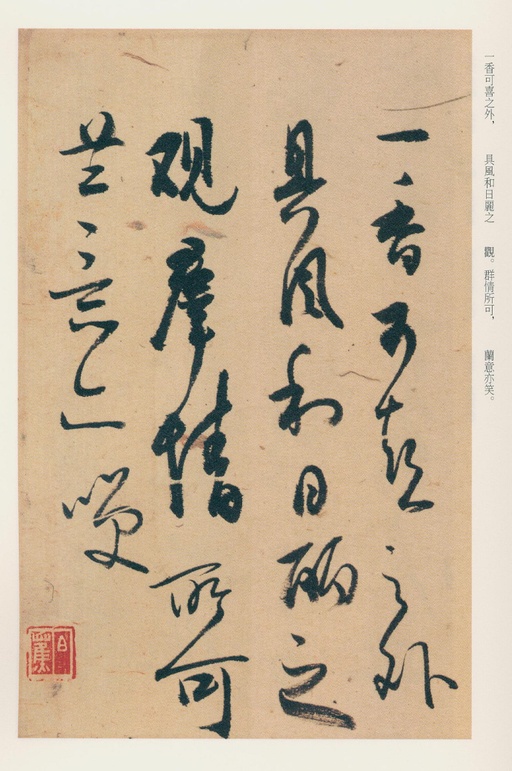 一香可喜之外，　具風和日麗之　觀。群情所可，　蘭意亦笑。
一香可喜之外
具风和日丽之
观群情所可
兰意亦笑